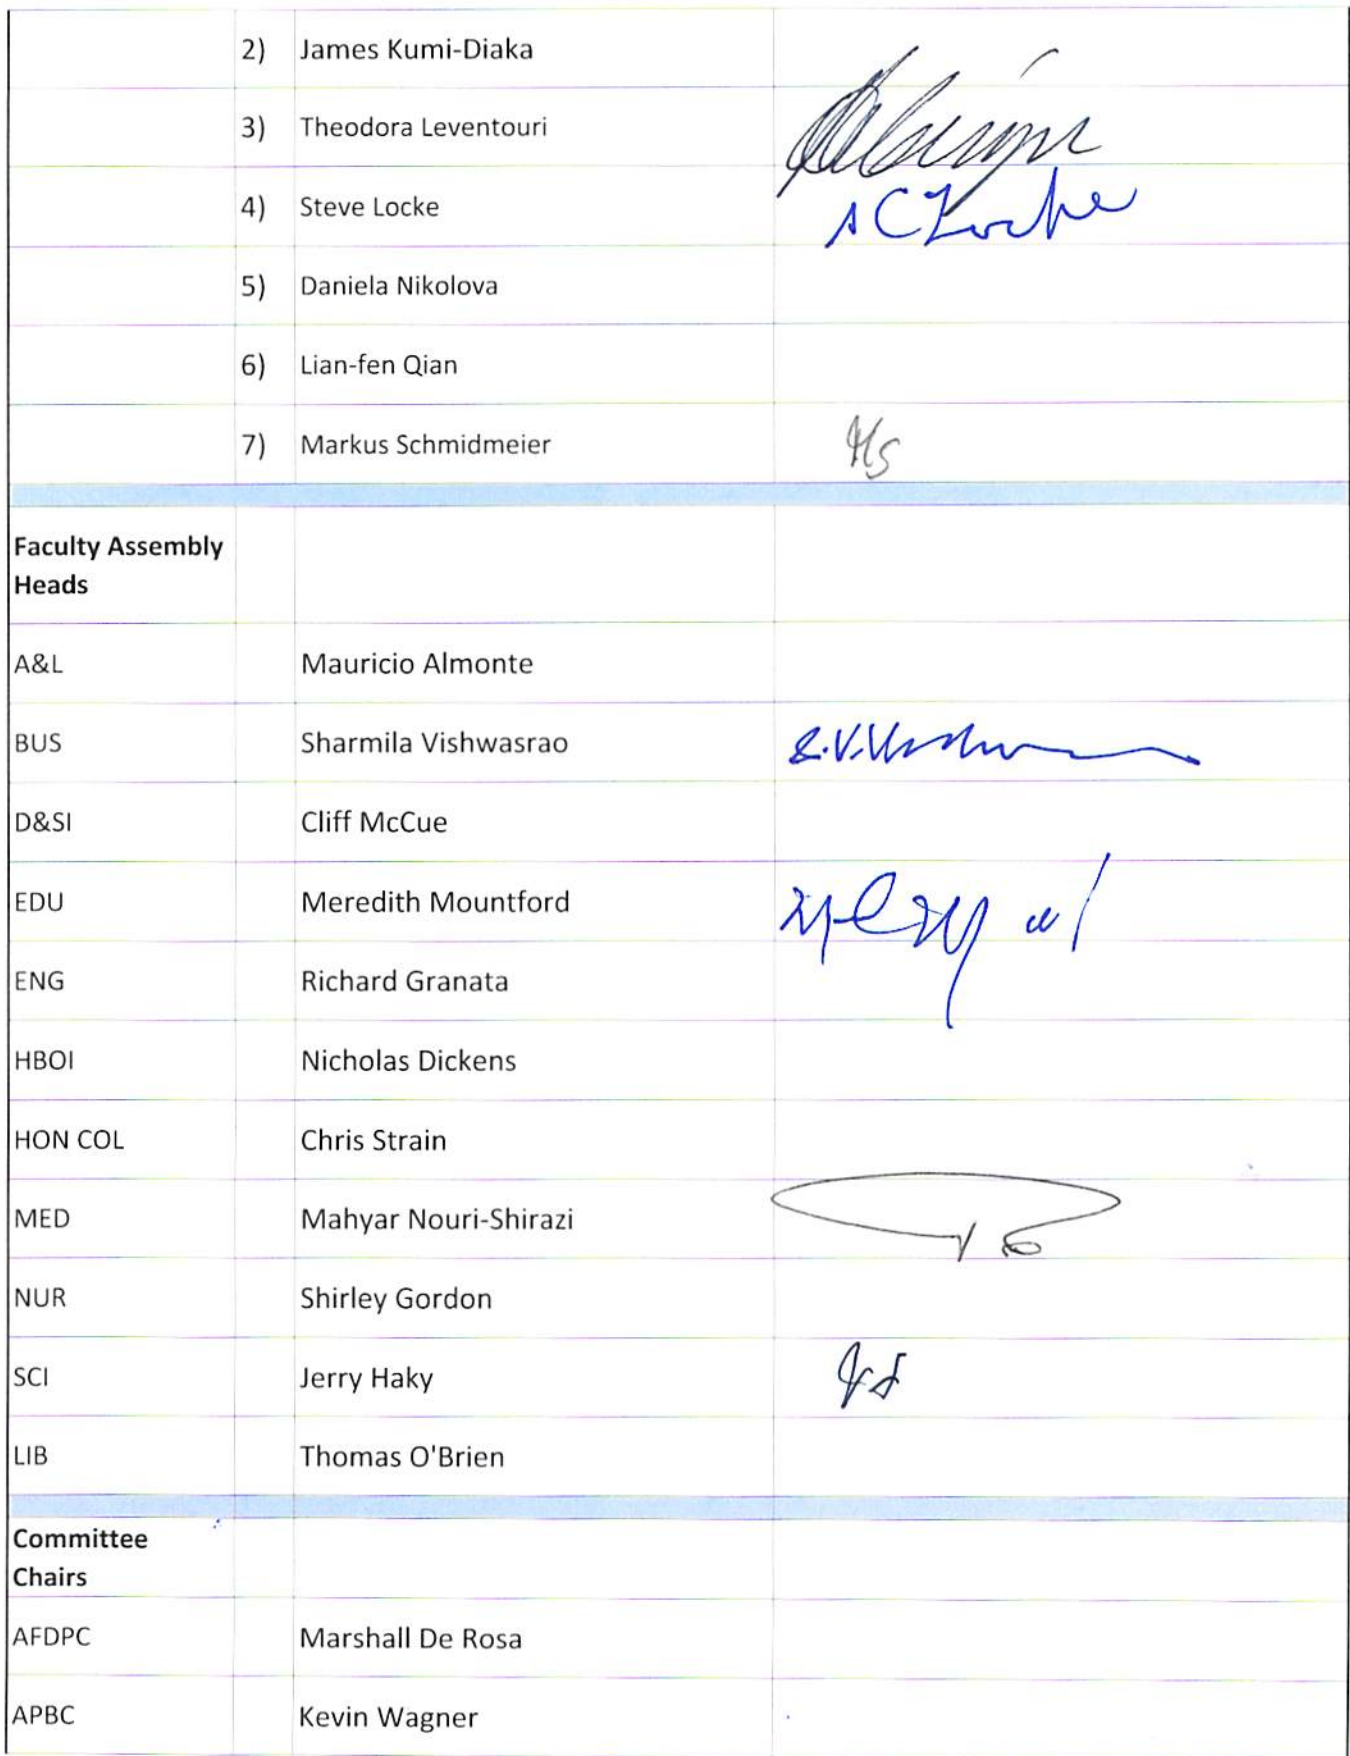 2) James Kumi-Diaka
3) Theodora Leventouri
4) Steve Locke
S C Locke
5) Daniela Nikolova
6) Lian-fen Qian
7) Markus Schmidmeier MS
Faculty Assembly
Heads
A&L Mauricio Almonte
BUS Sharmila Vishwasrao
D&SI Cliff McCue
EDU Meredith Mountford
ENG Richard Granata
HBOI Nicholas Dickens
HON COL Chris Strain
MED Mahyar Nouri-Shirazi
NUR Shirley Gordon
SCI Jerry Haky
LIB Thomas O'Brien
Committee
Chairs
AFDPC Marshall De Rosa
APBC Kevin Wagner